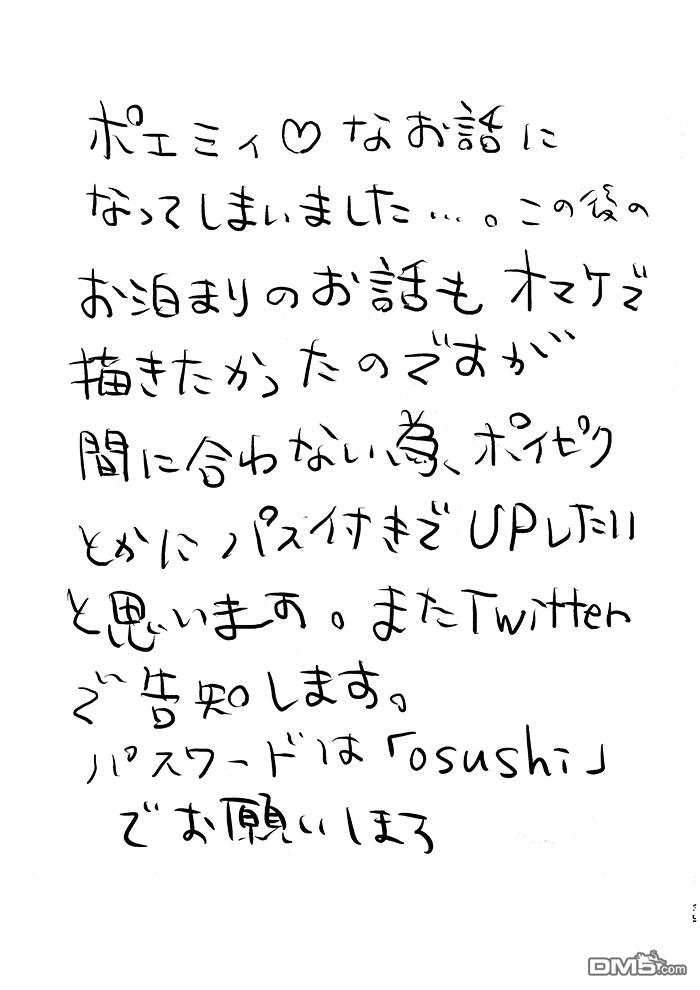 ポエミィ♡なお話に
なってしまいました…。この後の
お泊まりのお話もオマケで
描きたかったのですが
間に合わない為、ポイピク
とかにパス付きでUPしたい
と思います。またTwitter
で告知します。
パスワードは「osushi」
でお願いしまろ
DM5.com